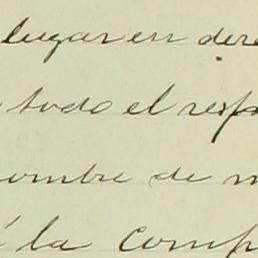 lugar en dere
todo el resp
ombre de m
la comp